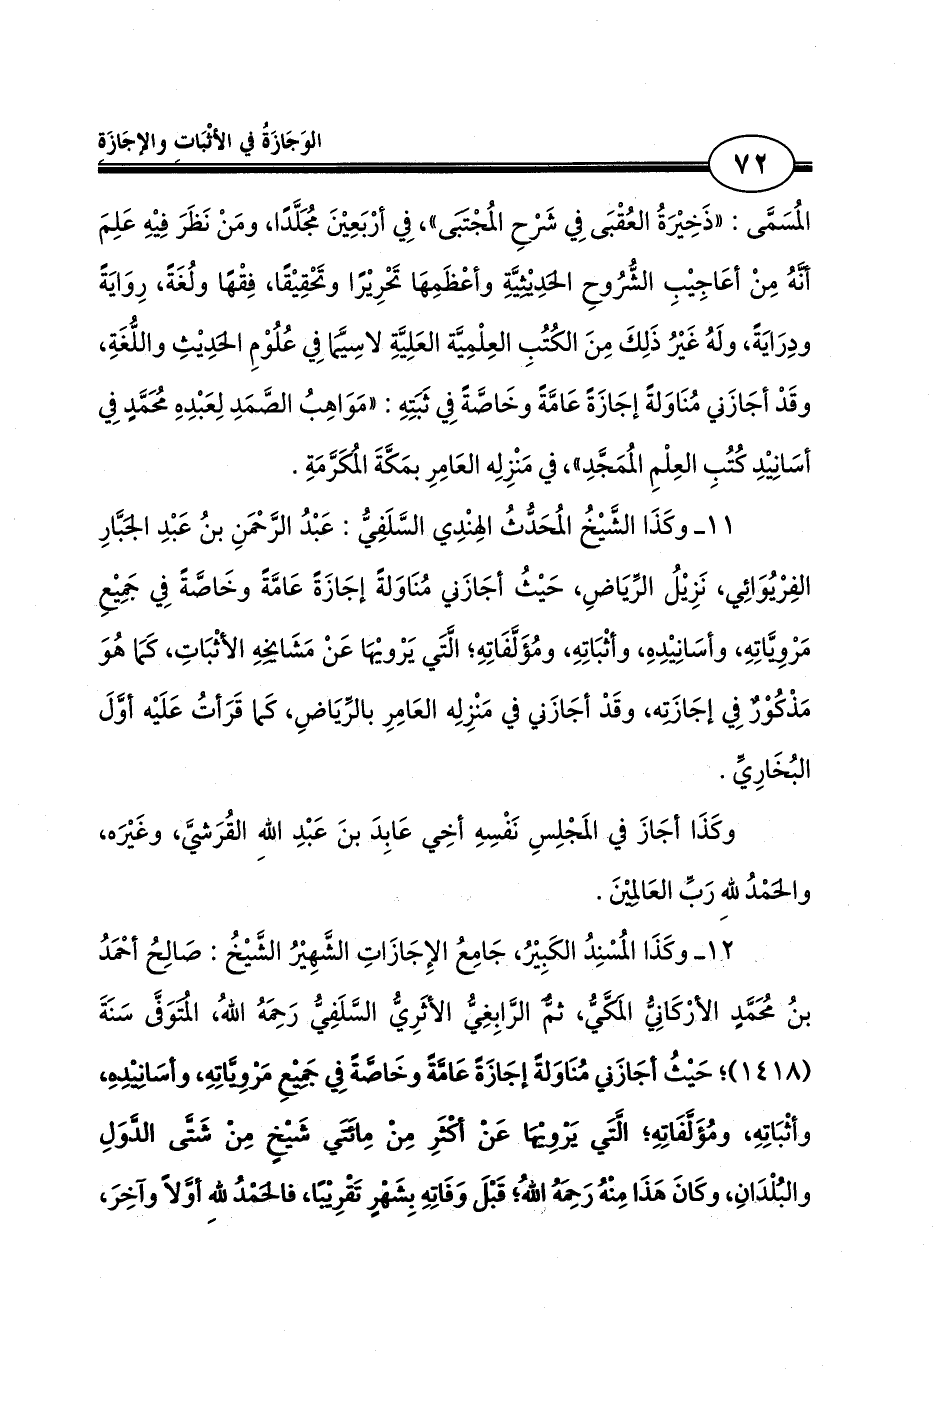 الوَجَازَةُ في الأثْبَاتِ والإجَازَةِ
٧٢
المُسَمَّى : «ذَخِيْرَةُ العُقْبَى فِي شَرْحِ المُجْتَبَى»، فِي أرْبَعِيْنَ مُجَلَّدًا، ومَنْ نَظَرَ فِيْهِ عَلِمَ
أنَّهُ مِنْ أعَاجِيْبِ الشُّرُوحِ الحَدِيْثِيَّةِ وأعْظَمِهَا تَحْرِيْرًا وتَحْقِيْقًا، فِقْهًا ولُغَةً، رِوَايَةً
ودِرَايَةً، ولَهُ غَيْرُ ذَلِكَ مِنَ الكُتُبِ العِلْمِيَّةِ العَلِيَّةِ لاسِيَّمَا فِي عُلُوْمِ الحَدِيْثِ واللُّغَةِ،
وقَدْ أجَازَني مُنَاوَلَةً إجَازَةً عَامَّةً وخَاصَّةً فِي ثَبَتِهِ : «مَوَاهِبُ الصَّمَدِ لِعَبْدِهِ مُحَمَّدٍ فِي
أسَانِيْدِ كُتُبِ العِلْمِ المُمَجَّدِ»، فِي مَنْزِلِه العَامِرِ بمَكَّةَ المُكَرَّمَةِ .
١١ـ وكَذَا الشَّيْخُ المُحَدِّثُ الهِنْدِي السَّلَفِيُّ : عَبْدُ الرَّحْمَنِ بنُ عَبْدِ الجَبَّارِ
الفِرْيُوَائِي، نَزِيْلُ الرِّيَاضِ، حَيْثُ أجَازَني مُنَاوَلَةً إجَازَةً عَامَّةً وخَاصَّةً فِي جَمِيْعِ
مَرْوِيَّاتِهِ، وأسَانِيْدِهِ، وأثْبَاتِهِ، ومُؤَلَّفَاتِهِ؛ الَّتِي يَرْوِيْهَا عَنْ مَشَايخِهِ الأثْبَاتِ، كَمَا هُوَ
مَذْكُوْرٌ فِي إجَازَتِه، وقَدْ أجَازَني فِي مَنْزِلِه العَامِرِ بالرِّيَاضِ، كَمَا قَرَأتُ عَلَيْه أوَّلَ
البُخَارِيِّ .
وكَذَا أجَازَ في المَجْلِسِ نَفْسِهِ أخِي عَابِدَ بنَ عَبْدِ اللهِ القُرَشيَّ، وغَيْرَه،
والحَمْدُ للهِ رَبِّ العَالمِيْنَ .
١٢ـ وكَذَا المُسْنِدُ الكَبِيْرُ، جَامِعُ الإجَازَاتِ الشَّهِيْرُ الشَّيْخُ : صَالِحُ أحْمَدُ
بنُ مُحَمَّدٍ الأرْكَانيُّ المَكِّيُّ، ثمَّ الرَّابِغِيُّ الأثَرِيُّ السَّلَفِيُّ رَحِمَهُ اللهُ، المُتَوَفَّى سَنَةَ
(١٤١٨)؛ حَيْثُ أجَازَني مُنَاوَلَةً إجَازَةً عَامَّةً وخَاصَّةً فِي جَمِيْعِ مَرْوِيَّاتِهِ، وأسَانِيْدِهِ،
وأثْبَاتِهِ، ومُؤَلَّفَاتِهِ؛ الَّتِي يَرْوِيْهَا عَنْ أكْثَرِ مِنْ مِائَتَي شَيْخٍ مِنْ شَتَّى الدَّوَلِ
والبُلْدَانِ، وكَانَ هَذَا مِنْهُ رَحِمَهُ اللهُ؛ قَبْلَ وَفَاتِهِ بِشَهْرٍ تَقْرِيْبًا، فالحَمْدُ للهِ أوَّلاً وآخِرَ،